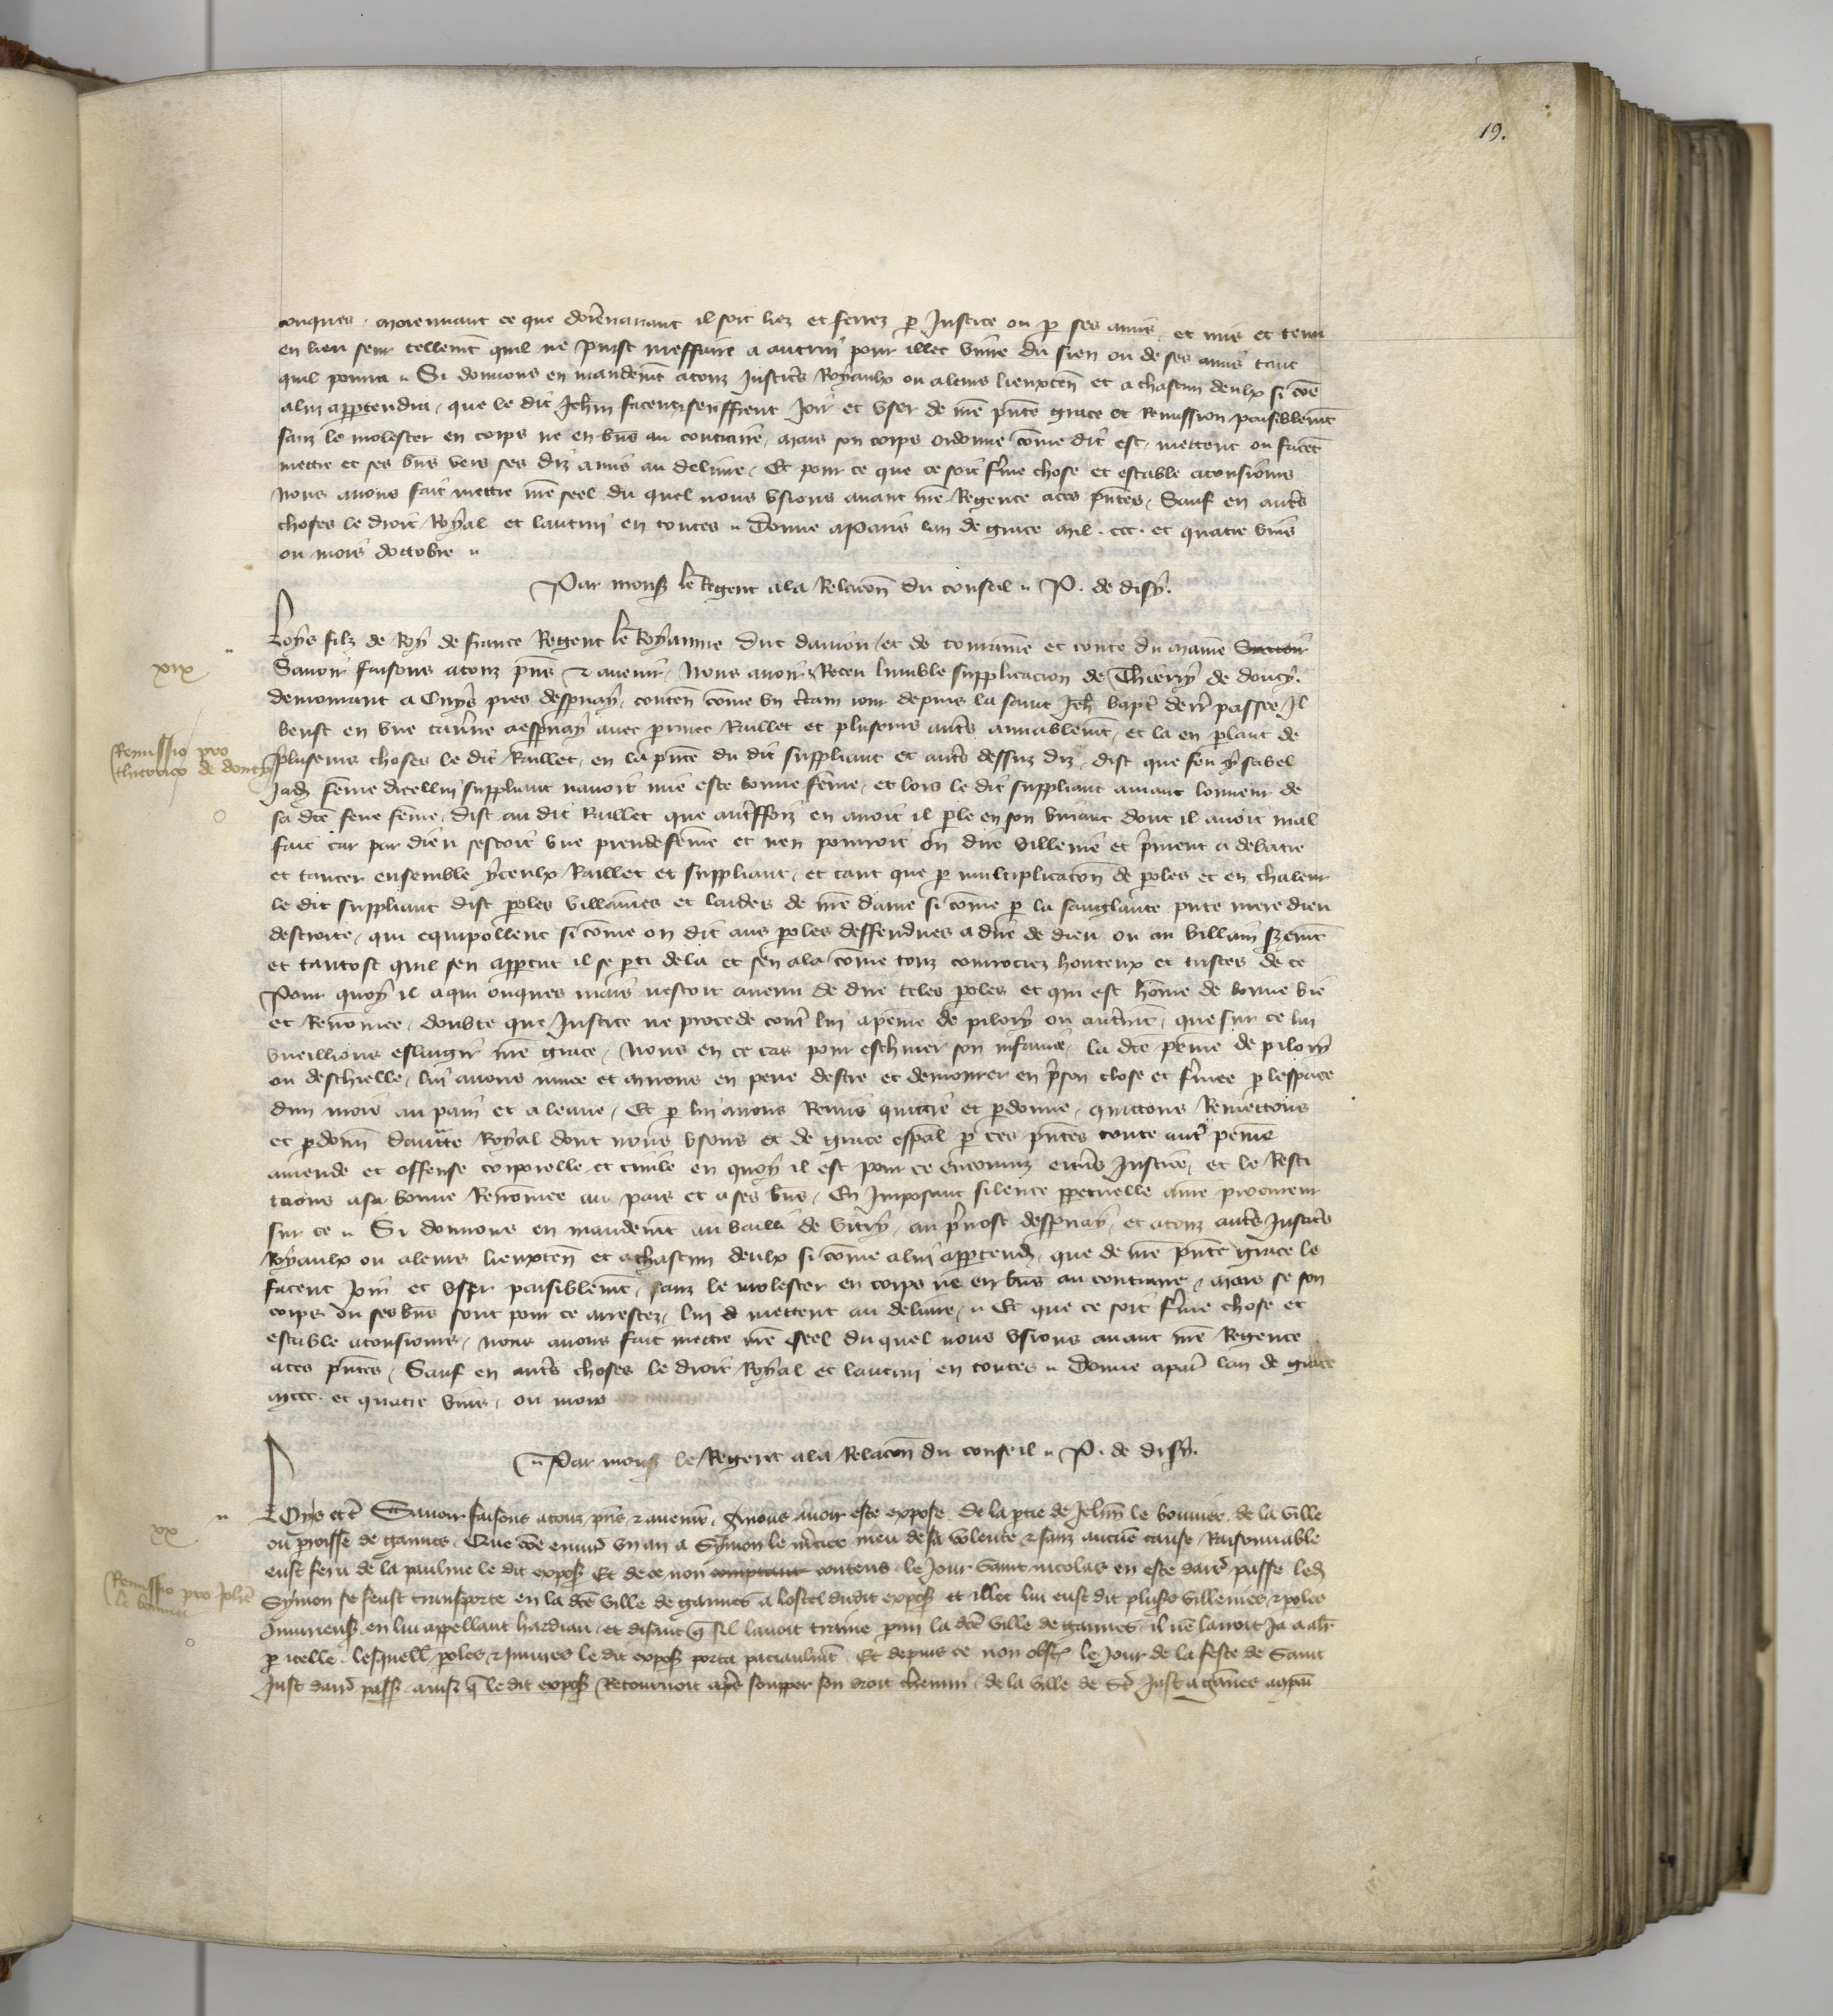 19.
onques, moiennant ce que dorenavant il soit liez et ferrez p Justice ou p ses amis, et mis et tenu
en lieu seur tellemt quil ne puist meffaire a autrui pour illec vivre du sien ou de ses amis tant
quil pourra. Si donnons en mandemt a touz justiciers Royaulx ou a leurs lieuxten et a chascun deulx si coe
a lui appartendra, que le dit Jehan facent & seuffrent Joir et user de nre pnte grace et Remission paisiblemt
sanz le molester en corps ne en biens au contraire, mais son corps ordonne come dit est, mettent ou facent
mettre et ses biens vers ses diz amis au delivre, Et pour ce que ce soit ferme chose et estable a tousiours
Nous avons fait mettre nre seel du quel nous usions avant nre Regence a ces pntes, Sauf en autres
choses le droit Royal et lautrui en toutes. Donne a Paris lan de grace mil. ccc. et quatre vins
ou mois doctobre
Par mons le Regent a la Relacon du conseil. P. de disy.
xix
Loys filz de Roy de france Regent le Royaume, Duc daniou, et de touraine et conte du maine Savoir
Savoir faisons a touz pns & avenir, Nous avoir Receu lumble supplicacion de Thierry de doncy.
demourant a Cuys pres desparnay, conten come un certain iour depuis la saint Jeh bapt derr passee, Il
beust en une taverne a esparnay avec perrinet Raillet et pluseurs autres amiablemt, et la en parlant de
Remissio pro
theorico de doncy
pluseurs choses le dit Raillet, en la pnce du dit suppliant et autres dessuz diz, dist que feu ysabel
Jadiz feme dicellui suppliant navoit mie este bonne feme, et lors le dit suppliant amant lonneur de
sa dce feue feme, dist au dit Raillet que autreffoiz en avoit il parle en son vivant dont il avoit mal
fait car par dieu sestoit une preudefeme et nen pourroit on dire villenie et prirent a debatre
et tancer ensemble yceulx Raillet et suppliant, et tant que p multiplicacon de paroles et en chaleur
le dit suppliant dist paroles villaines et laides de nre dame si come p la sanglante pute mere dieu
destroite, qui equipollent si come on dit aus paroles deffendues a dire de dieu ou au villain serement
et tantost quil sen apperceut il se parti de la et sen ala come touz courrociez honteux et tristes de ce
Pour quoy il a qui onques mais nestoit avenu de dire teles paroles et qui est home de bonne vie
et Renomee, doubte que Justice ne procede contre lui a peine de pilory ou autremt, que sur ce lui
vueillions eslargir nre grace, Nous en ce cas pour eschiver son infamie, la dce peine de pilory
ou deschielle, lui avons muee et muons en peine destre et demourer en prison close et fermee p lespace
dun mois au pain et a leaue, Et p lui avons Remis quitte et pardonne, quittons Remettons
et pardonn dauctte Royal dont nous usons et de grace espal p ces pntes toute autre peine
amende et offense corporelle et civile en quoy il est pour ce encouruz envers Justice, et le Resti
tuons a sa bonne Renomee au pais et a ses biens, En Imposant silence perpetuelle a nre procureur
sur ce. Si donnons en mandemt au bailli de vitry, au prevost desparnay, et a touz autres Justiciers
Royaulx ou a leurs lieuxten et a chascun deulx si come a lui appartendra, que de nre pnte grace le
facent Joir et user paisiblemt, sanz le molester en corps ne en biens au contraire, mais se son
corps ou ses biens sont pour ce arrestez, lui mettent au delivre. Et que ce soit ferme chose et
estable a tousiours, nous avons fait mettre nre seel du quel nous usions avant nre Regence
a ces pntes, Sauf en autres choses le droit Royal et lautrui en toutes. Donne a paris lan de grace
mccc. et quatre vins, ou mois
Par mons le Regent a la Relacon du conseil. P. de disy.
xx
Loys etc Savoir faisons a touz pns & avenir, A nous avoir este expose de la ptie de Jehan le bouvier de la ville
ou proisse de gannes, Que come environ un an a Symon le mercier meu de sa volente & sanz aucune cause Raisonnable
eust feru de la paulme le dit exposant Et de ce non comptant contens le Jour Saint nicolas en este darr passe led
Remissio pro Johe
le bouvier
Symon se feust transporte en la dce ville de gannes a lostel dudit exposant et illec lui eust dit pluseurs villenies & paroles
Iniurieuses en lui appellant hardiau et disant que sil lavoit traine parmi la dce ville de gannes il ne lavoit Ja
p icelle lesquelles paroles & Iniures le dit exposant porta paciaulmt Et depuis ce non obst le Jour de la feste de Saint
Just darr passe ainsi que le dit exposant Retournoit apres soupper son droit chemin de la ville de St Just a gannes